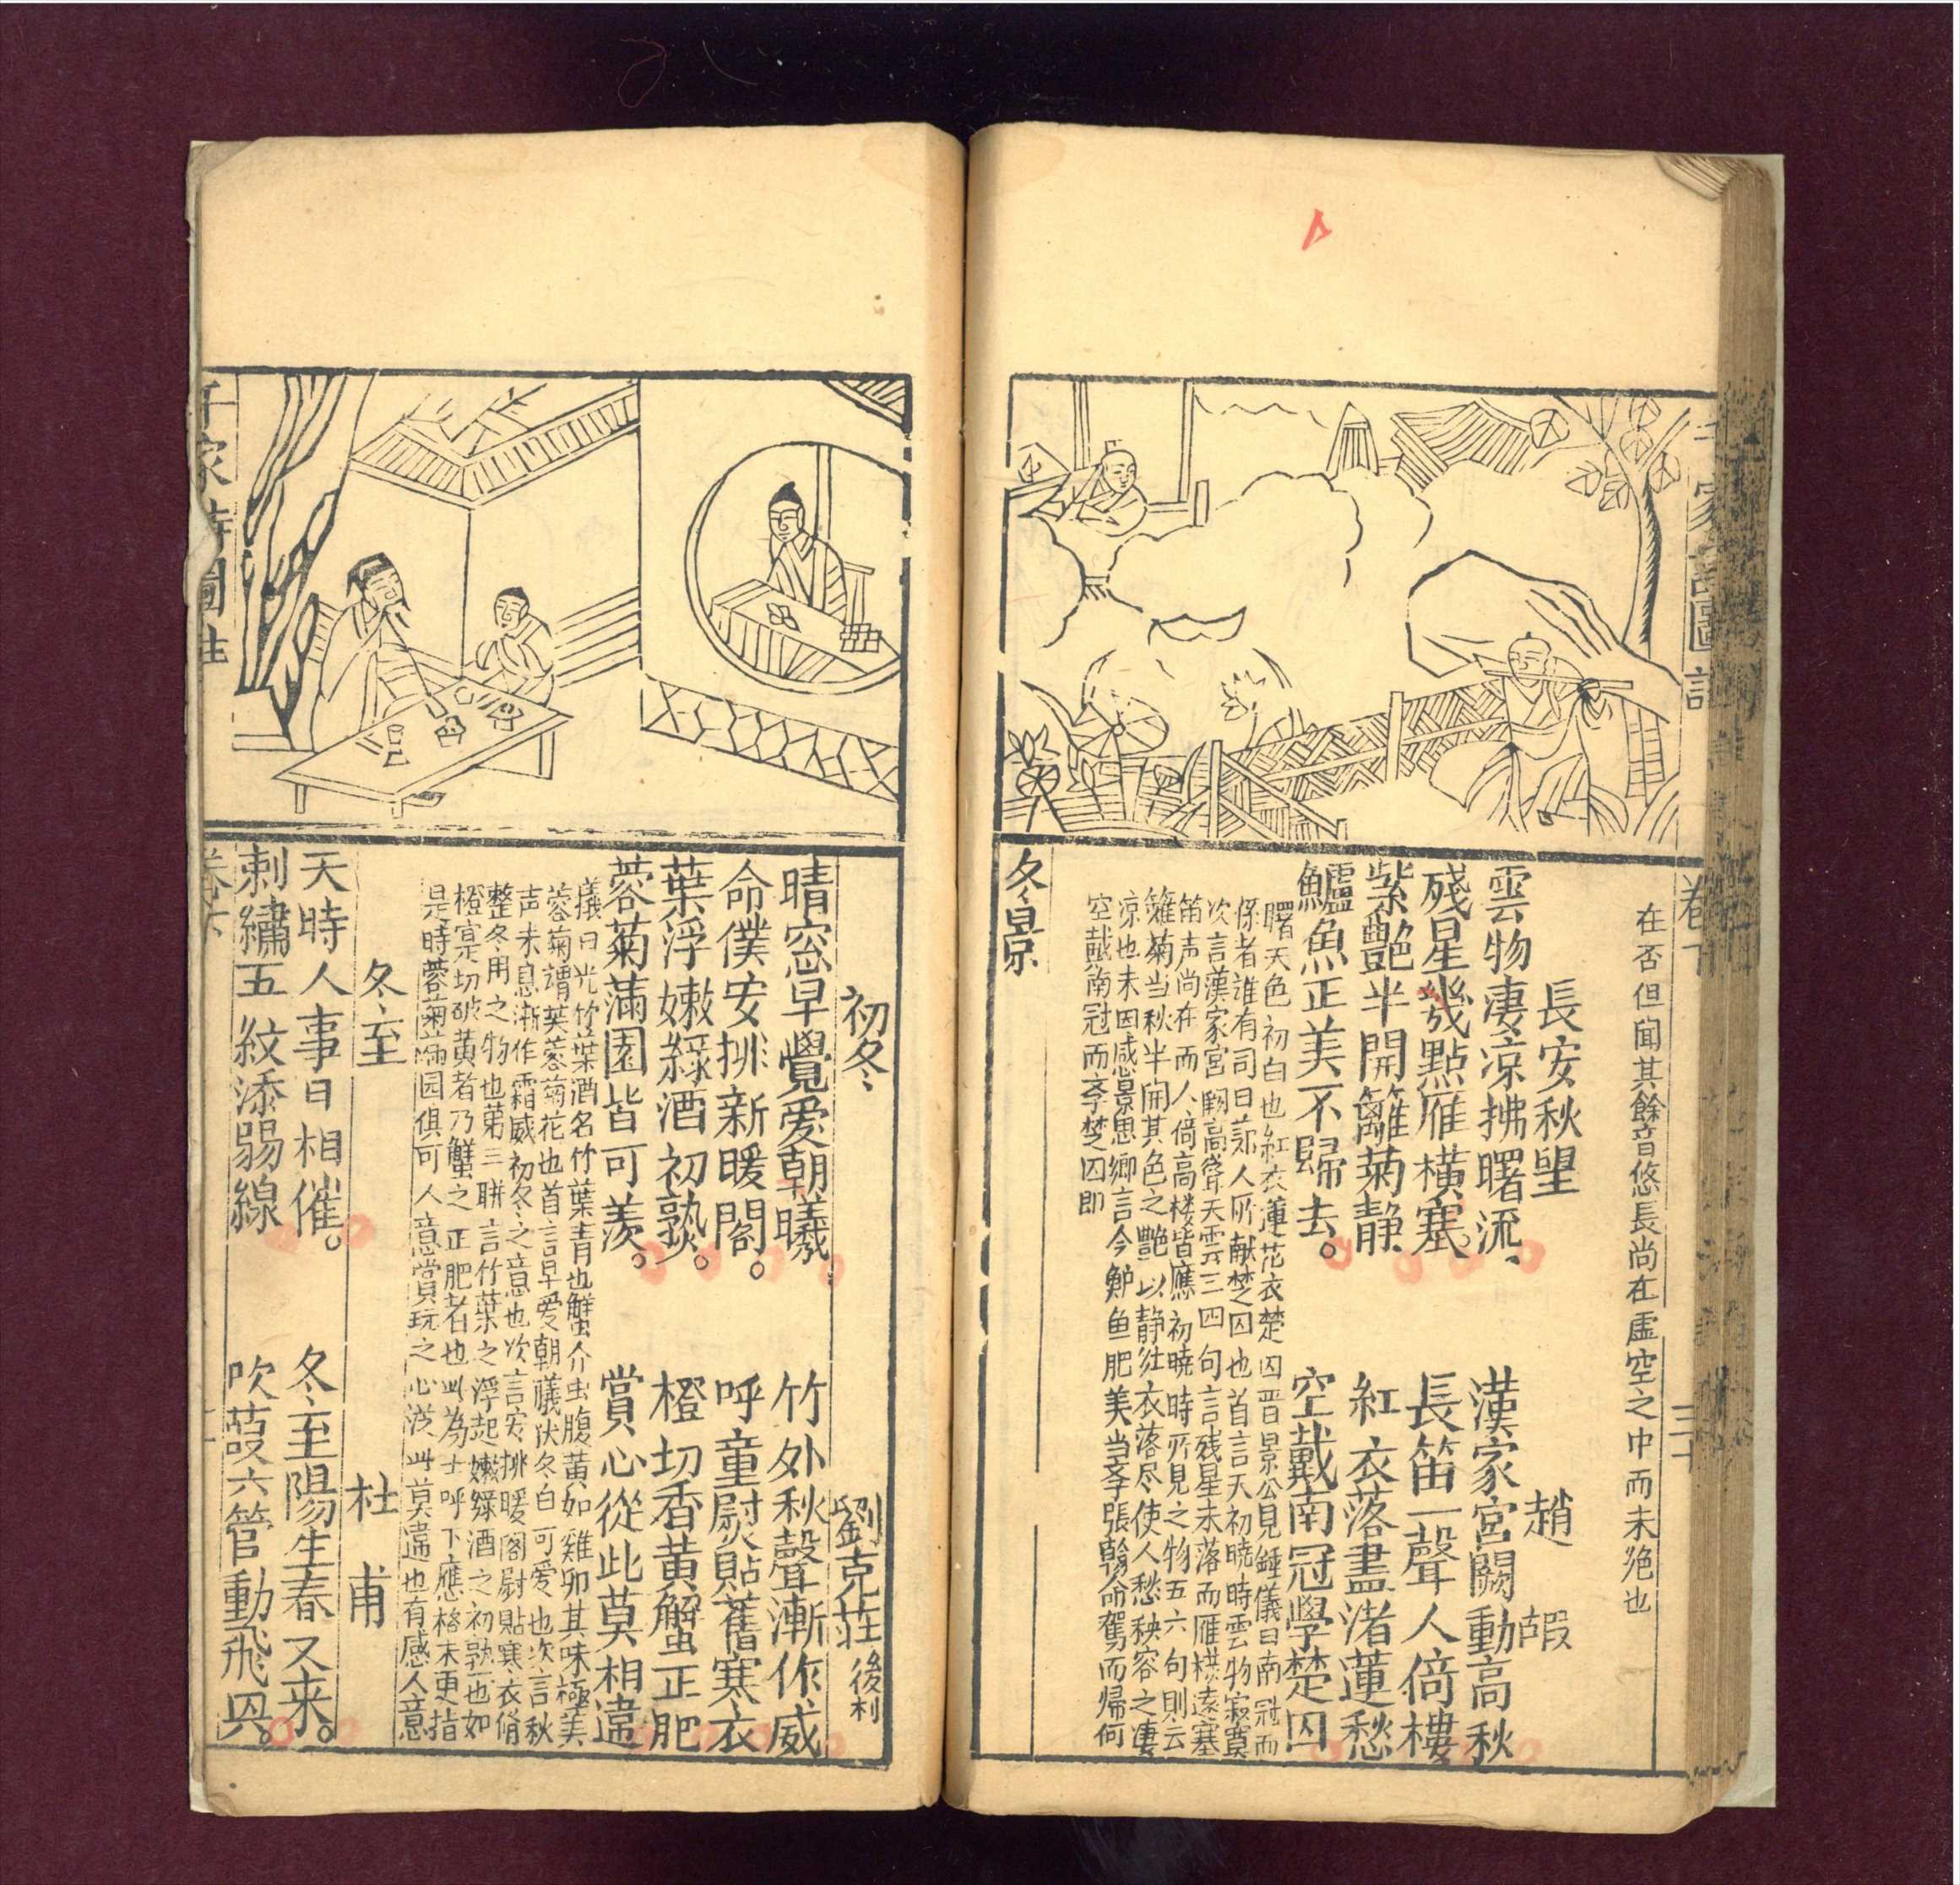 千家詩圖註
卷下
三十
在否但聞其餘音悠長尚在虛空之中而未绝也
長安秋望
趙嘏
雲物凄凉拂曙流、
漢家宮闕動高秋
殘星幾點雁橫塞。
長笛一聲人倚樓
紫艷半開籬菊静
紅衣落盡渚蓮愁
鱸魚正美不歸去。
空戴南冠學楚囚
曙天色初白也紅衣蓮花衣楚囚晋景公見鍾儀曰南冠而
係者誰有司曰郑人所献楚囚也首言天初曉時雲物寂寞
次言漢家宮闕高聳天雲三四句言残星未落而雁横遠塞
笛声尚在而人倚高楼皆應初曉時所見之物五六句則云
籬菊当秋半開其色之艷以静红衣落尽使人愁秧容之凄
凉也末因感景思鄉言今鱸鱼肥美当孝張翰命駕而帰何
空戴南冠而孝楚囚即
冬景
初冬
劉克莊 後村
晴窓早覺爱朝曦
竹外秋聲漸作威
命僕安排新暖閣。
呼童熨貼舊寒衣
葉浮嫩綠酒初熟。
橙切香黄蟹正肥
蓉菊滿園皆可羡。
賞心從此莫相違
儀日光竹葉酒名竹葉青也蟹介虫腹黄如雞卵其味極美
蓉菊謂芙蓉菊花也首言早爱朝曦伏冬白可爱也次言秋
声未息漸作霜威初冬之意也次言安排暖閣尉貼寒衣脩
整冬用之物也第三聨言竹葉之浮起嫩綠酒之初熟也如
橙实切破黄者乃蟹之正肥者也此為士呼下應格末更指
是時蓉菊滿园俱可人意賞玩之心從此莫違也有感人意
冬至
杜甫
天時人事日相催。
冬至陽生春又来。
刺繡五紋添弱線
吹葭六管動飛灰。
千家詩圖註
卷下